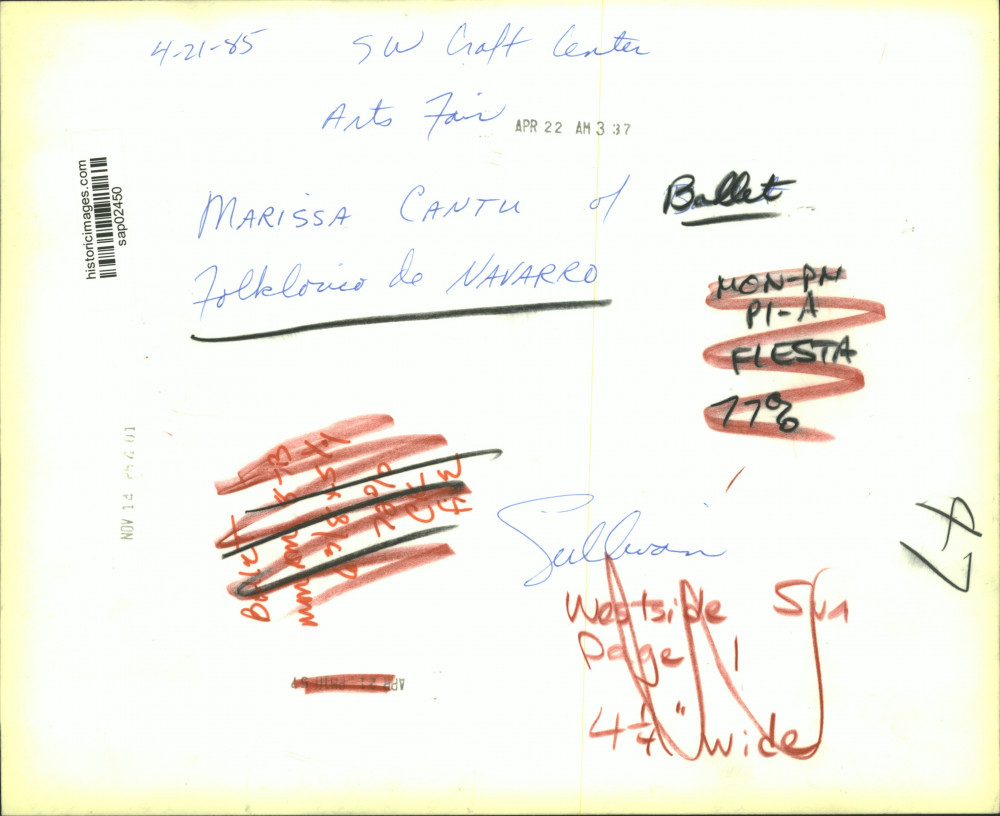 4-21-85 SW Craft Center
Arts Fair
APR 22 AM 3 37
MARISSA CANTU of Ballet
Folklorico de NAVARRO
historicimages.com
sap02450
MON-PM
P1-A
FIESTA
77%
NOV 14
Ballet
Sullivan
Westside Sun
Page 1
4 1/4" wide
APR 21